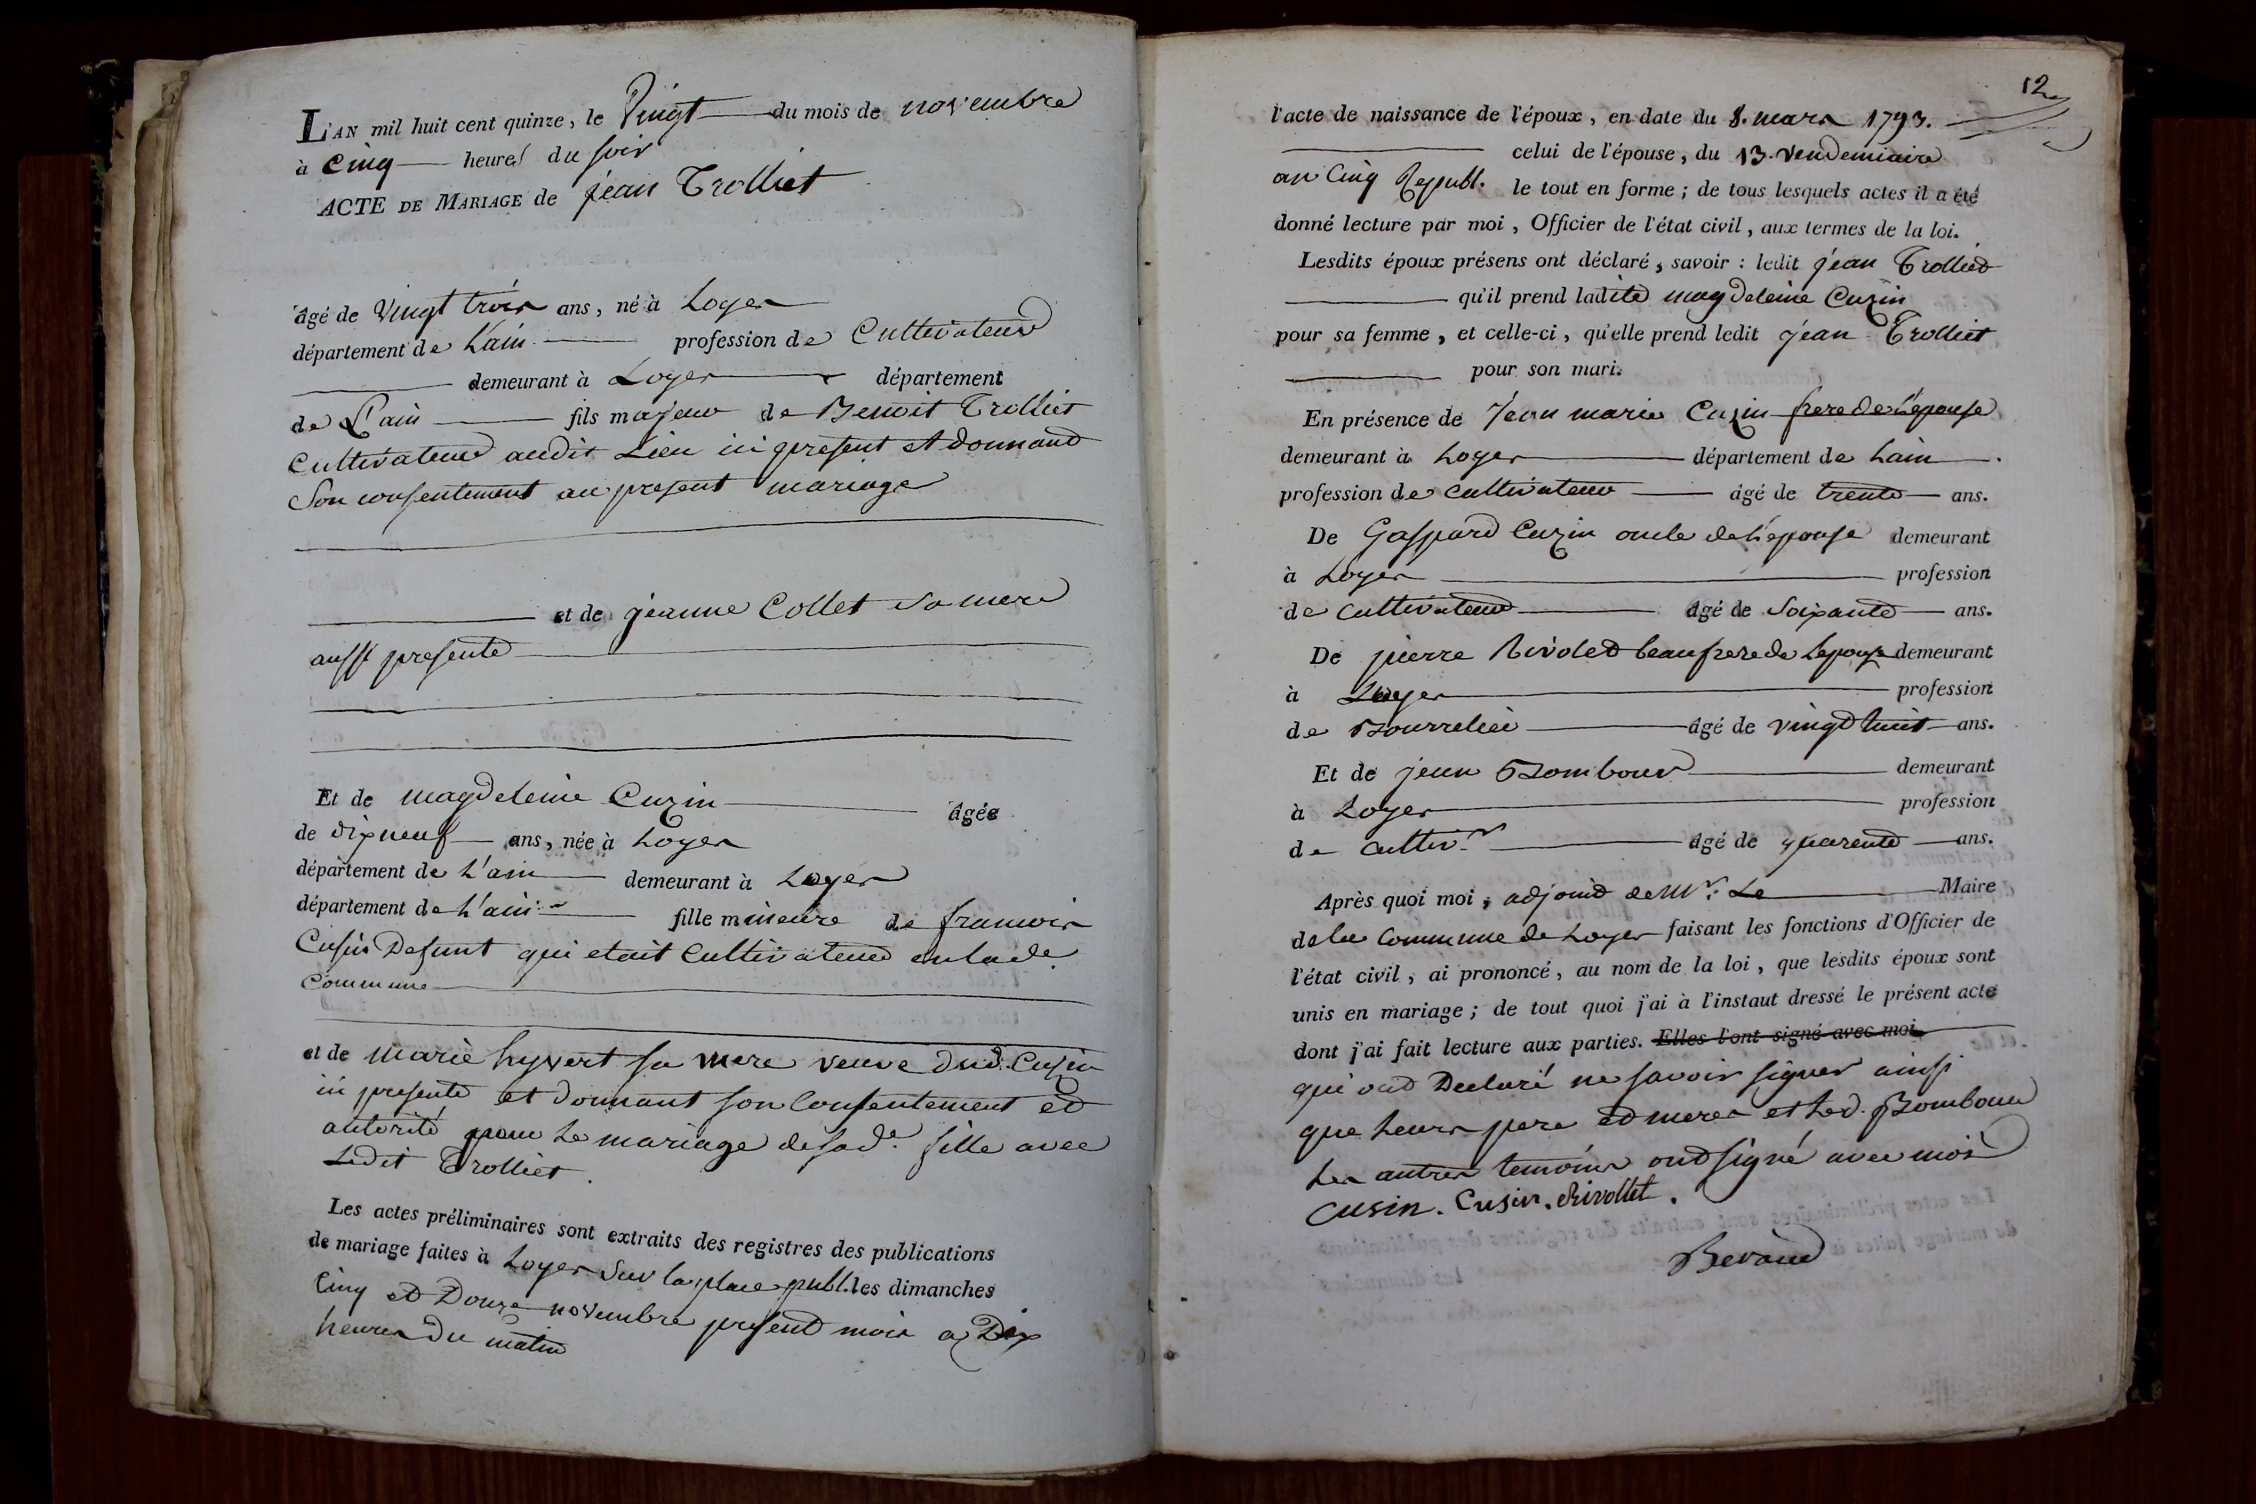 L'AN mil huit cent quinze, le Vingt du mois de novembre
à cinq heures du soir
ACTE DE MARIAGE de jean Trolliet
âgé de Vingt trois ans, né à Loyes
département de L'ain profession de Cultivateur
demeurant à Loyes département
de L'ain fils majeur de Benoit Trolliet
Cultivateur audit Lieu ici présent et donnant
Son consentement au présent mariage
et de jeanne Collet sa mere
aussi presente
Et de magdeleine Cuzin âgée
de dixneuf ans, née à Loyes
département de L'ain demeurant à Loyes
département de L'ain fille mineure de francois
Cusin Defunt qui etait Cultivateur en lade
Commune
et de marie hyvert sa mere veuve dud. Cusin
ici presente et donnant son Consentement et
autorité pour Le mariage de sade fille avec
Ledit Trolliet.
Les actes préliminaires sont extraits des registres des publications
de mariage faites à Loyes Sur la place publ. les dimanches
Cinq et Douze novembre present mois a Dix
heures Du matin
12
l'acte de naissance de l'époux, en date du 8. mars 1793.
celui de l'épouse, du 13. vendemiaire
an Cinq Republ. le tout en forme ; de tous lesquels actes il a été
donné lecture par moi, Officier de l'état civil, aux termes de la loi.
Lesdits époux présens ont déclaré, savoir : ledit jean Trolliet
qu'il prend ladite magdeleine Cuzin
pour sa femme, et celle-ci, qu'elle prend ledit jean Trolliet
pour son mari.
En présence de Jean marie Cuzin frere de L'epouse
demeurant à Loyes département de Lain
profession de cultivateur âgé de trente ans.
De Gaspard Cuzin oncle de L'epouse demeurant
à Loyes profession
de cultivateur âgé de Soixante ans.
De pierre Rivolet beaufrere de Lepouse demeurant
à Loyes profession
de Bourrelier âgé de vingt huit ans.
Et de jean Bombour demeurant
à Loyes profession
de cultivr âgé de quarente ans.
Après quoi moi, adjoint de Mr. Le Maire
de la Commune de Loyes faisant les fonctions d'Officier de
l'état civil, ai prononcé, au nom de la loi, que lesdits époux sont
unis en mariage ; de tout quoi j'ai à l'instaut dressé le présent acte
dont j'ai fait lecture aux parties. Elles l'ont signé avec moi
qui ont Declaré ne savoir signer ainsi
que Leurs pere et meres et Led. Bombour
Les autres temoins ont signé avec moi
Cusin. Cusin. Rivollet.
Beraud